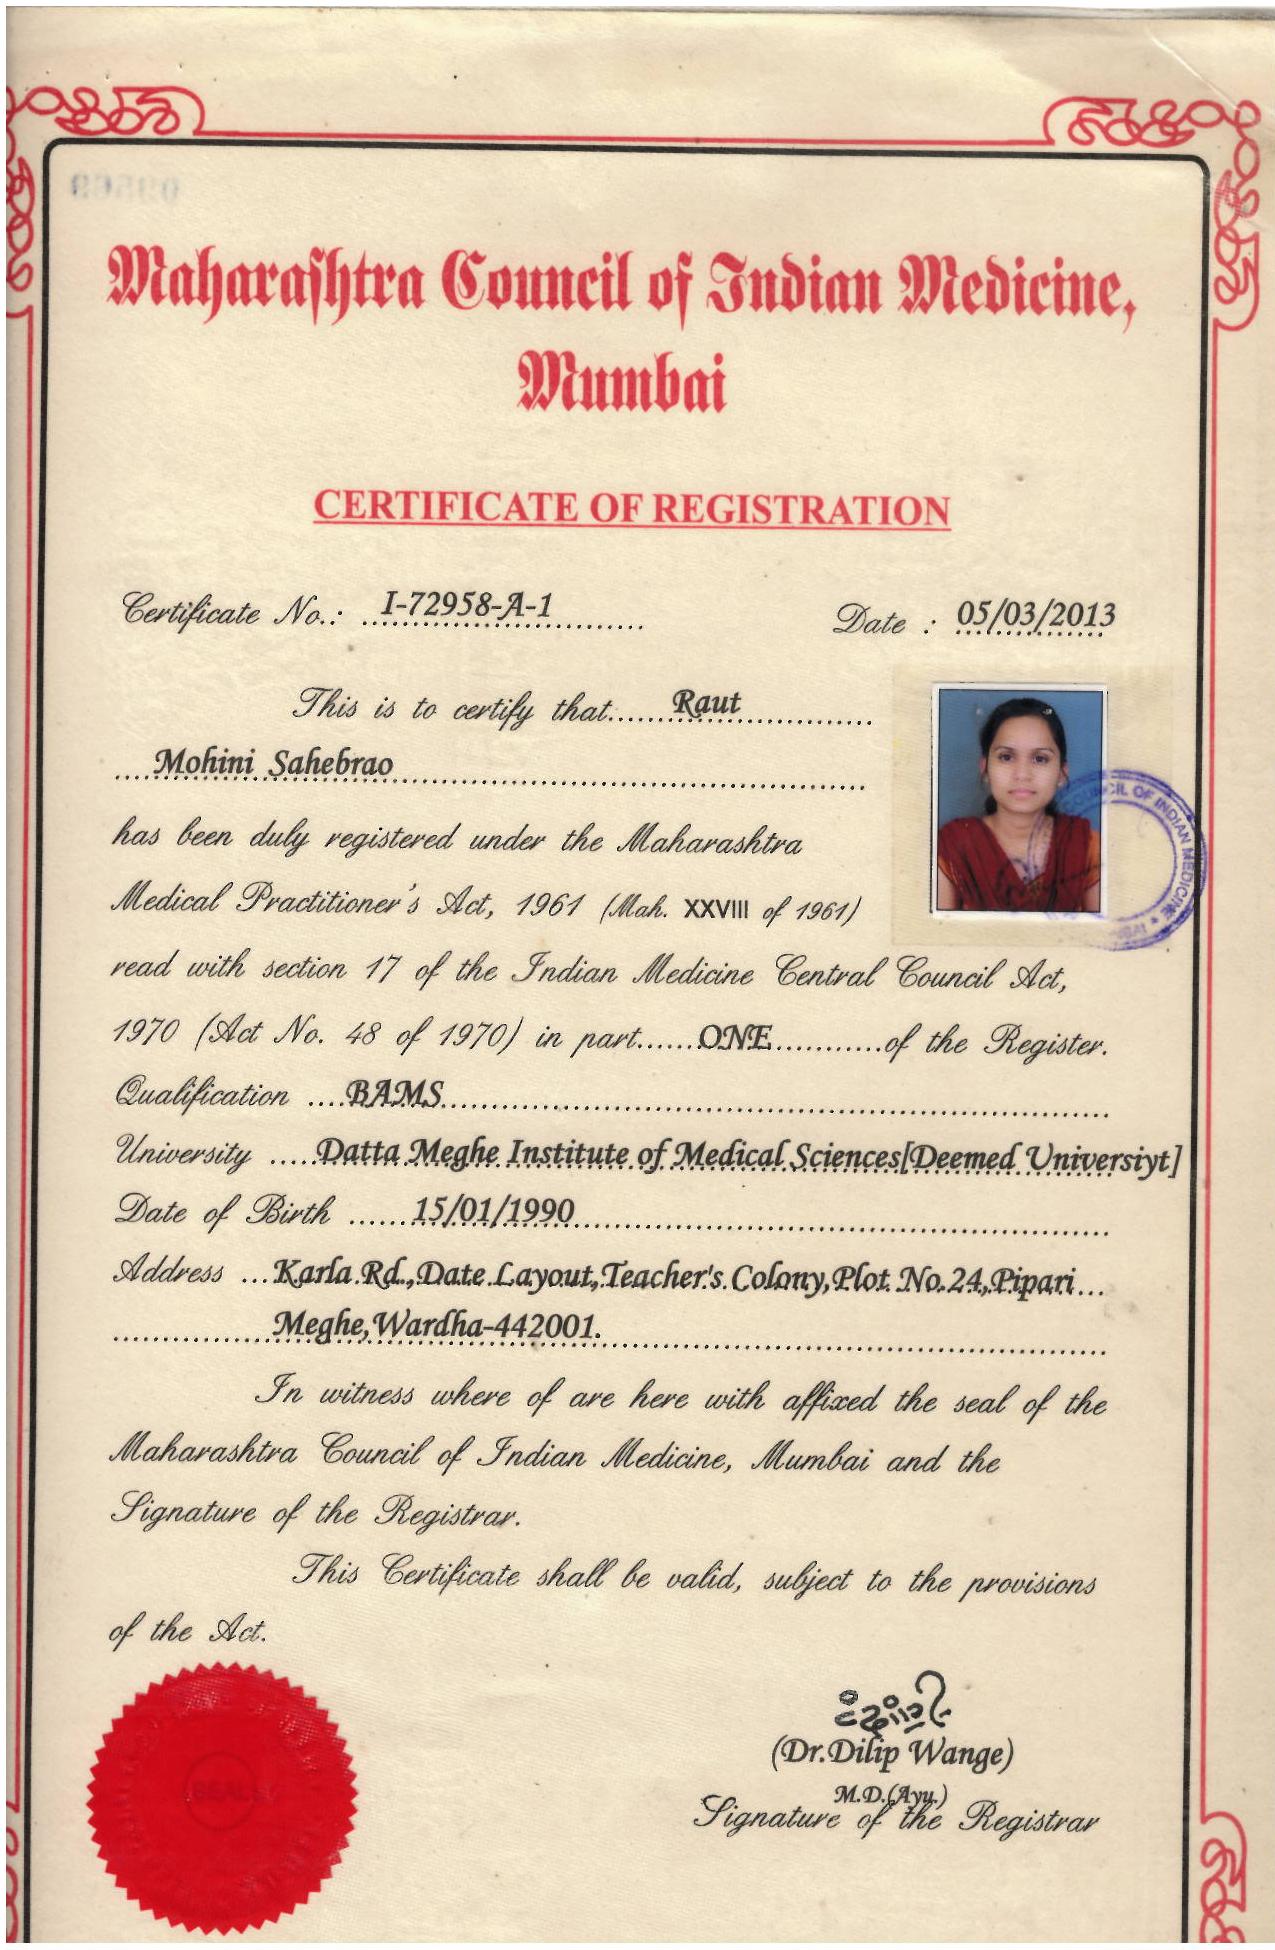 Maharashtra Council of Indian Medicine,
Mumbai
CERTIFICATE OF REGISTRATION
Certificate No.: I-72958-A-1 Date : 05/03/2013
This is to certify that Raut
Mohini Sahebrao
has been duly registered under the Maharashtra
Medical Practitioner's Act, 1961 (Mah. XXVIII of 1961)
read with section 17 of the Indian Medicine Central Council Act,
1970 (Act No. 48 of 1970) in part ONE of the Register.
Qualification BAMS
University Datta Meghe Institute of Medical Sciences[Deemed Universiyt]
Date of Birth 15/01/1990
Address Karla Rd.,Date Layout,Teacher's Colony,Plot No.24,Pipari
Meghe,Wardha-442001.
In witness where of are here with affixed the seal of the
Maharashtra Council of Indian Medicine, Mumbai and the
Signature of the Registrar.
This Certificate shall be valid, subject to the provisions
of the Act.
(Dr.Dilip Wange)
M.D.(Ayu.)
Signature of the Registrar
OF INDIAN MEDICINE